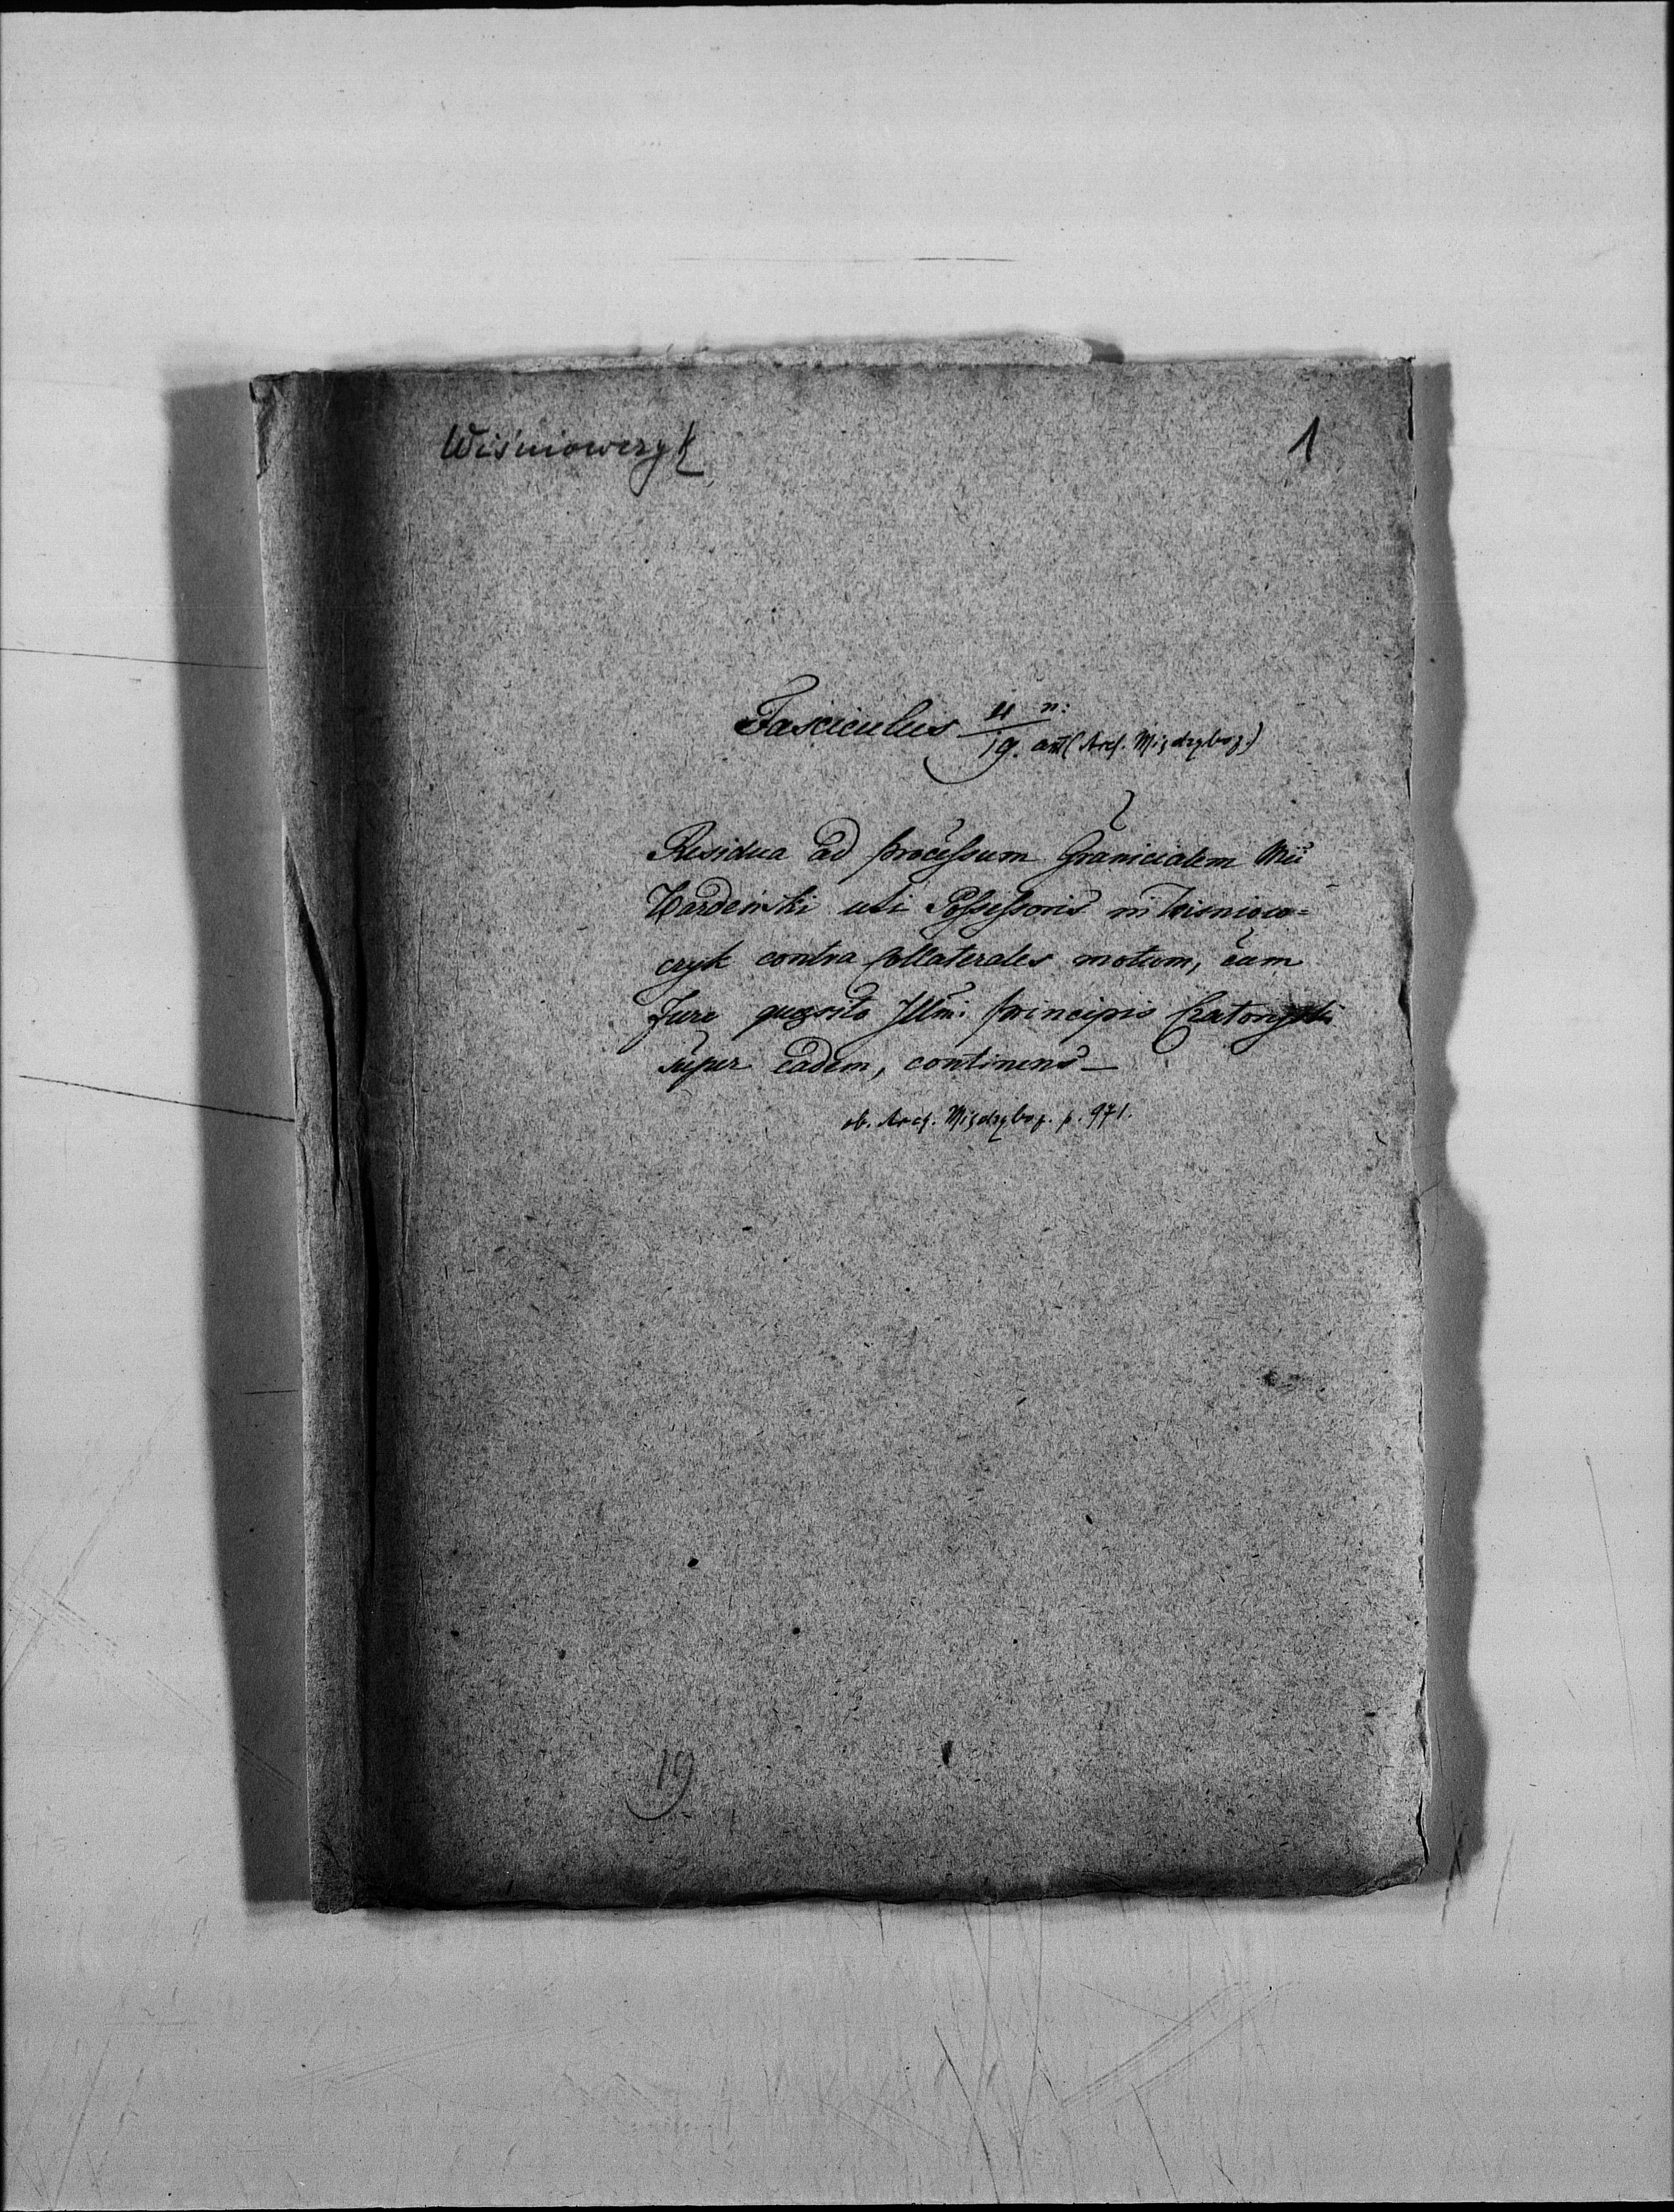 Wiśniowczyk
1
Fasciculus 21 n:
19. ant (Arch. Międzyboz.)
Residua ad processum Granicialem Mei
Hardeinski uti Possessoris in Wisniow=
czyk contra Collaterales motum, cum
Jure quęsito Jllmi Principis Czatoryski
super eadem, continens —
ob. Arch. Międzyboz. p. 971.
19